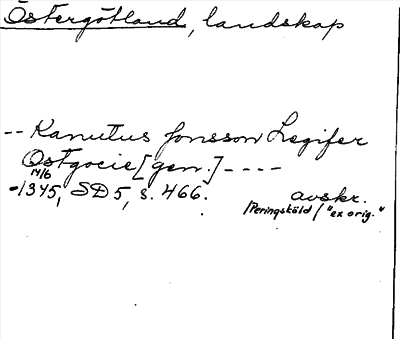 Östergötland, landskap
-- Kanutus Jonsson Legifer
Ostgocie [gen.] ----
14/6
-1345, SD 5, s. 466. avskr.
/Peringsköld/ "ex orig."